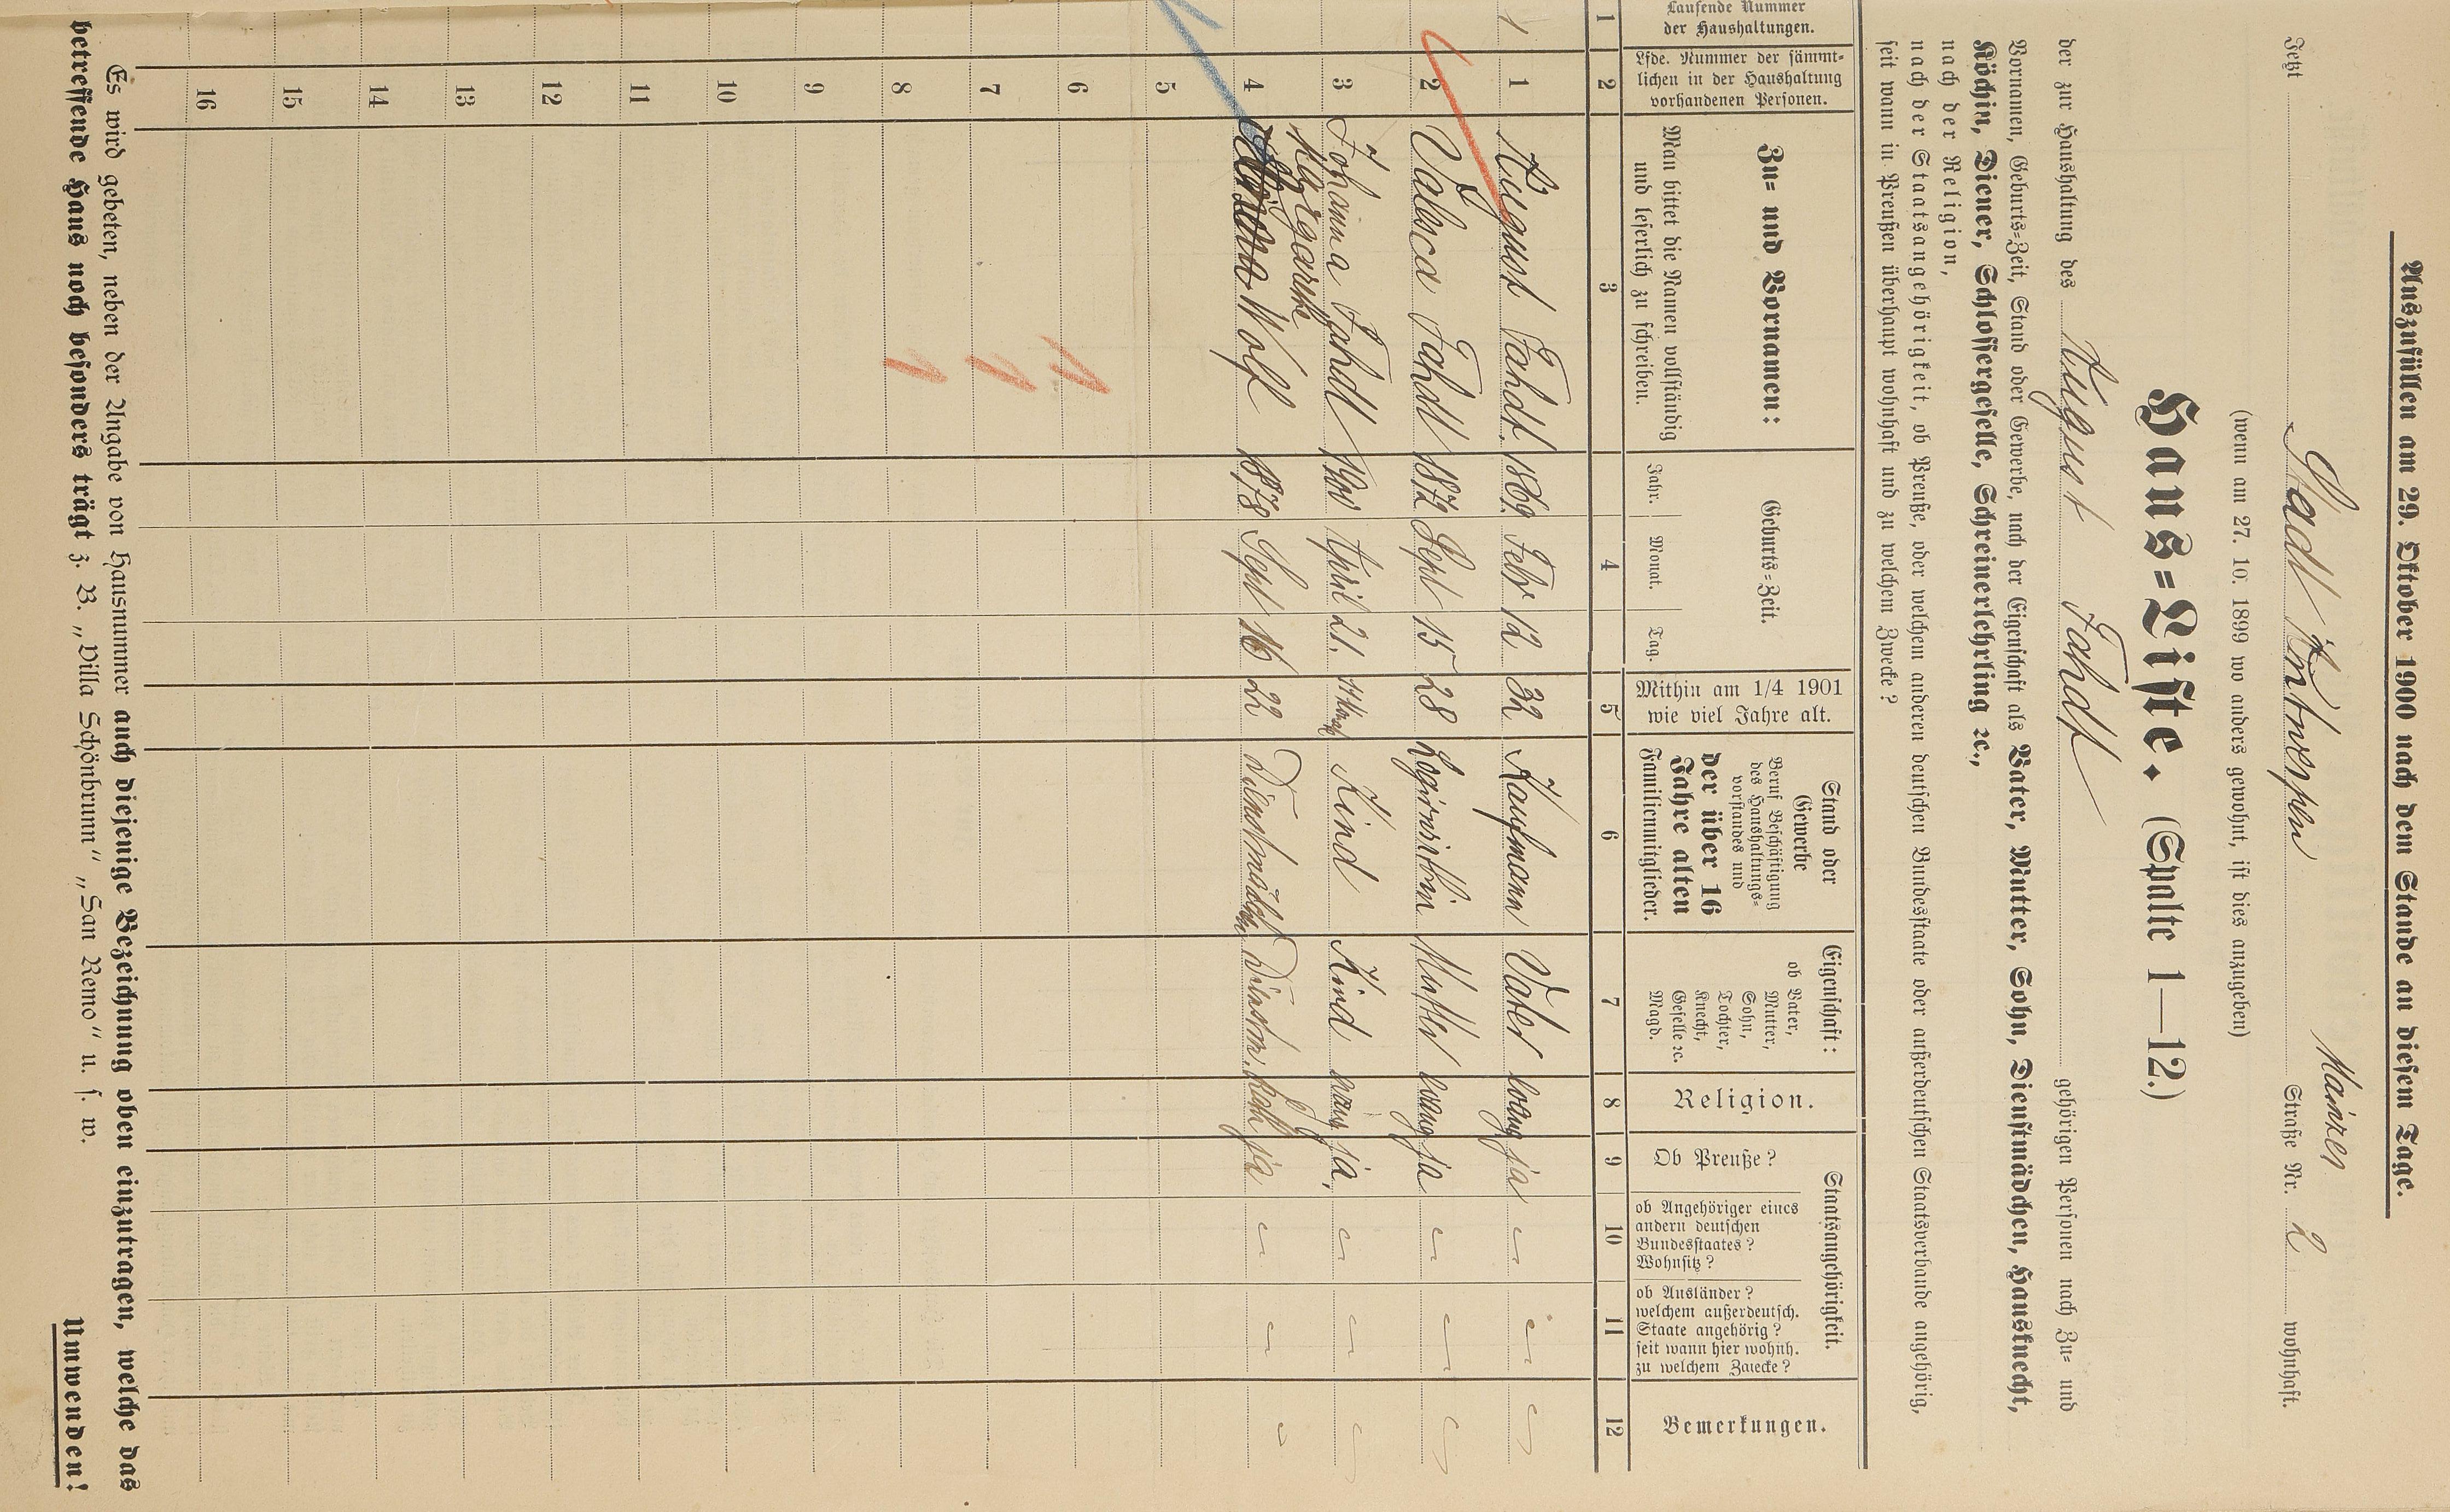 Auszufüllen am 29. Oktober 1900 nach dem Stande an diesem Tage.
Mainzer
Jetzt Stadt Antwerpen Straße Nr. 2 wohnhaft.
(wenn am 27. 10. 1899 wo anders gewohnt, ist dies anzugeben)
Haus=Liste. (Spalte 1—12.)
der zur Haushaltung des August Fahdt gehörigen Personen nach Zu= und
Vornamen, Geburts=Zeit, Stand oder Gewerbe, nach der Eigenschaft als Vater, Mutter, Sohn, Dienstmädchen, Hausknecht,
Köchin, Diener, Schlossergeselle, Schreinerlehrling ec.,
nach der Religion,
nach der Staatsangehörigkeit, ob Preuße, oder welchem anderen deutschen Bundesstaate oder außerdeutschen Staatsverbande angehörig,
seit wann in Preußen überhaupt wohnhaft und zu welchem Zwecke?
Laufende Nummer der Haushaltungen.
Lfde. Nummer der sämmt=lichen in der Haushaltung vorhandenen Personen.
Zu= und Vornamen:
Man bittet die Namen vollständig und leserlich zu schreiben.
Geburts=Zeit.
Jahr. Monat. Tag.
Mithin am 1/4 1901 wie viel Jahre alt.
Stand oder Gewerbe
Beruf Beschäftigung des Haushaltungs=vorstandes und
der über 16 Jahre alten Familienmitglieder.
Eigenschaft:
ob Vater, Mutter, Sohn, Tochter, Knecht, Geselle ec. Magd.
Religion.
Staatsangehörigkeit.
Ob Preuße?
ob Angehöriger eines andern deutschen Bundesstaates? Wohnsitz?
ob Ausländer? welchem außerdeutsch. Staate angehörig? seit wann hier wohnh. zu welchem Zwecke?
Bemerkungen.
1 2 3 4 5 6 7 8 9 10 11 12
1 1 August Fahdt 1869 Febr 12 32 Kaufmann Vater evang ja — — —
2 Valesca Fahdt 1872 Sept 15 28 Mutter evang ja — — —
3 Johanna Fahdt 1900 April 21. 11 Monat Kind Kind evang ja, — — —
Margarethe
4 Wolf 1878 Sept 16 22 Dienstmädchen kath ja — — —
5
6
7
8
9
10
11
12
13
14
15
16
Es wird gebeten, neben der Angabe von Hausnummer auch diejenige Bezeichnung oben einzutragen, welche das
betreffende Haus noch besonders trägt z. B. „Villa Schönbrunn“ „San Remo“ u. s. w.
Umwenden!